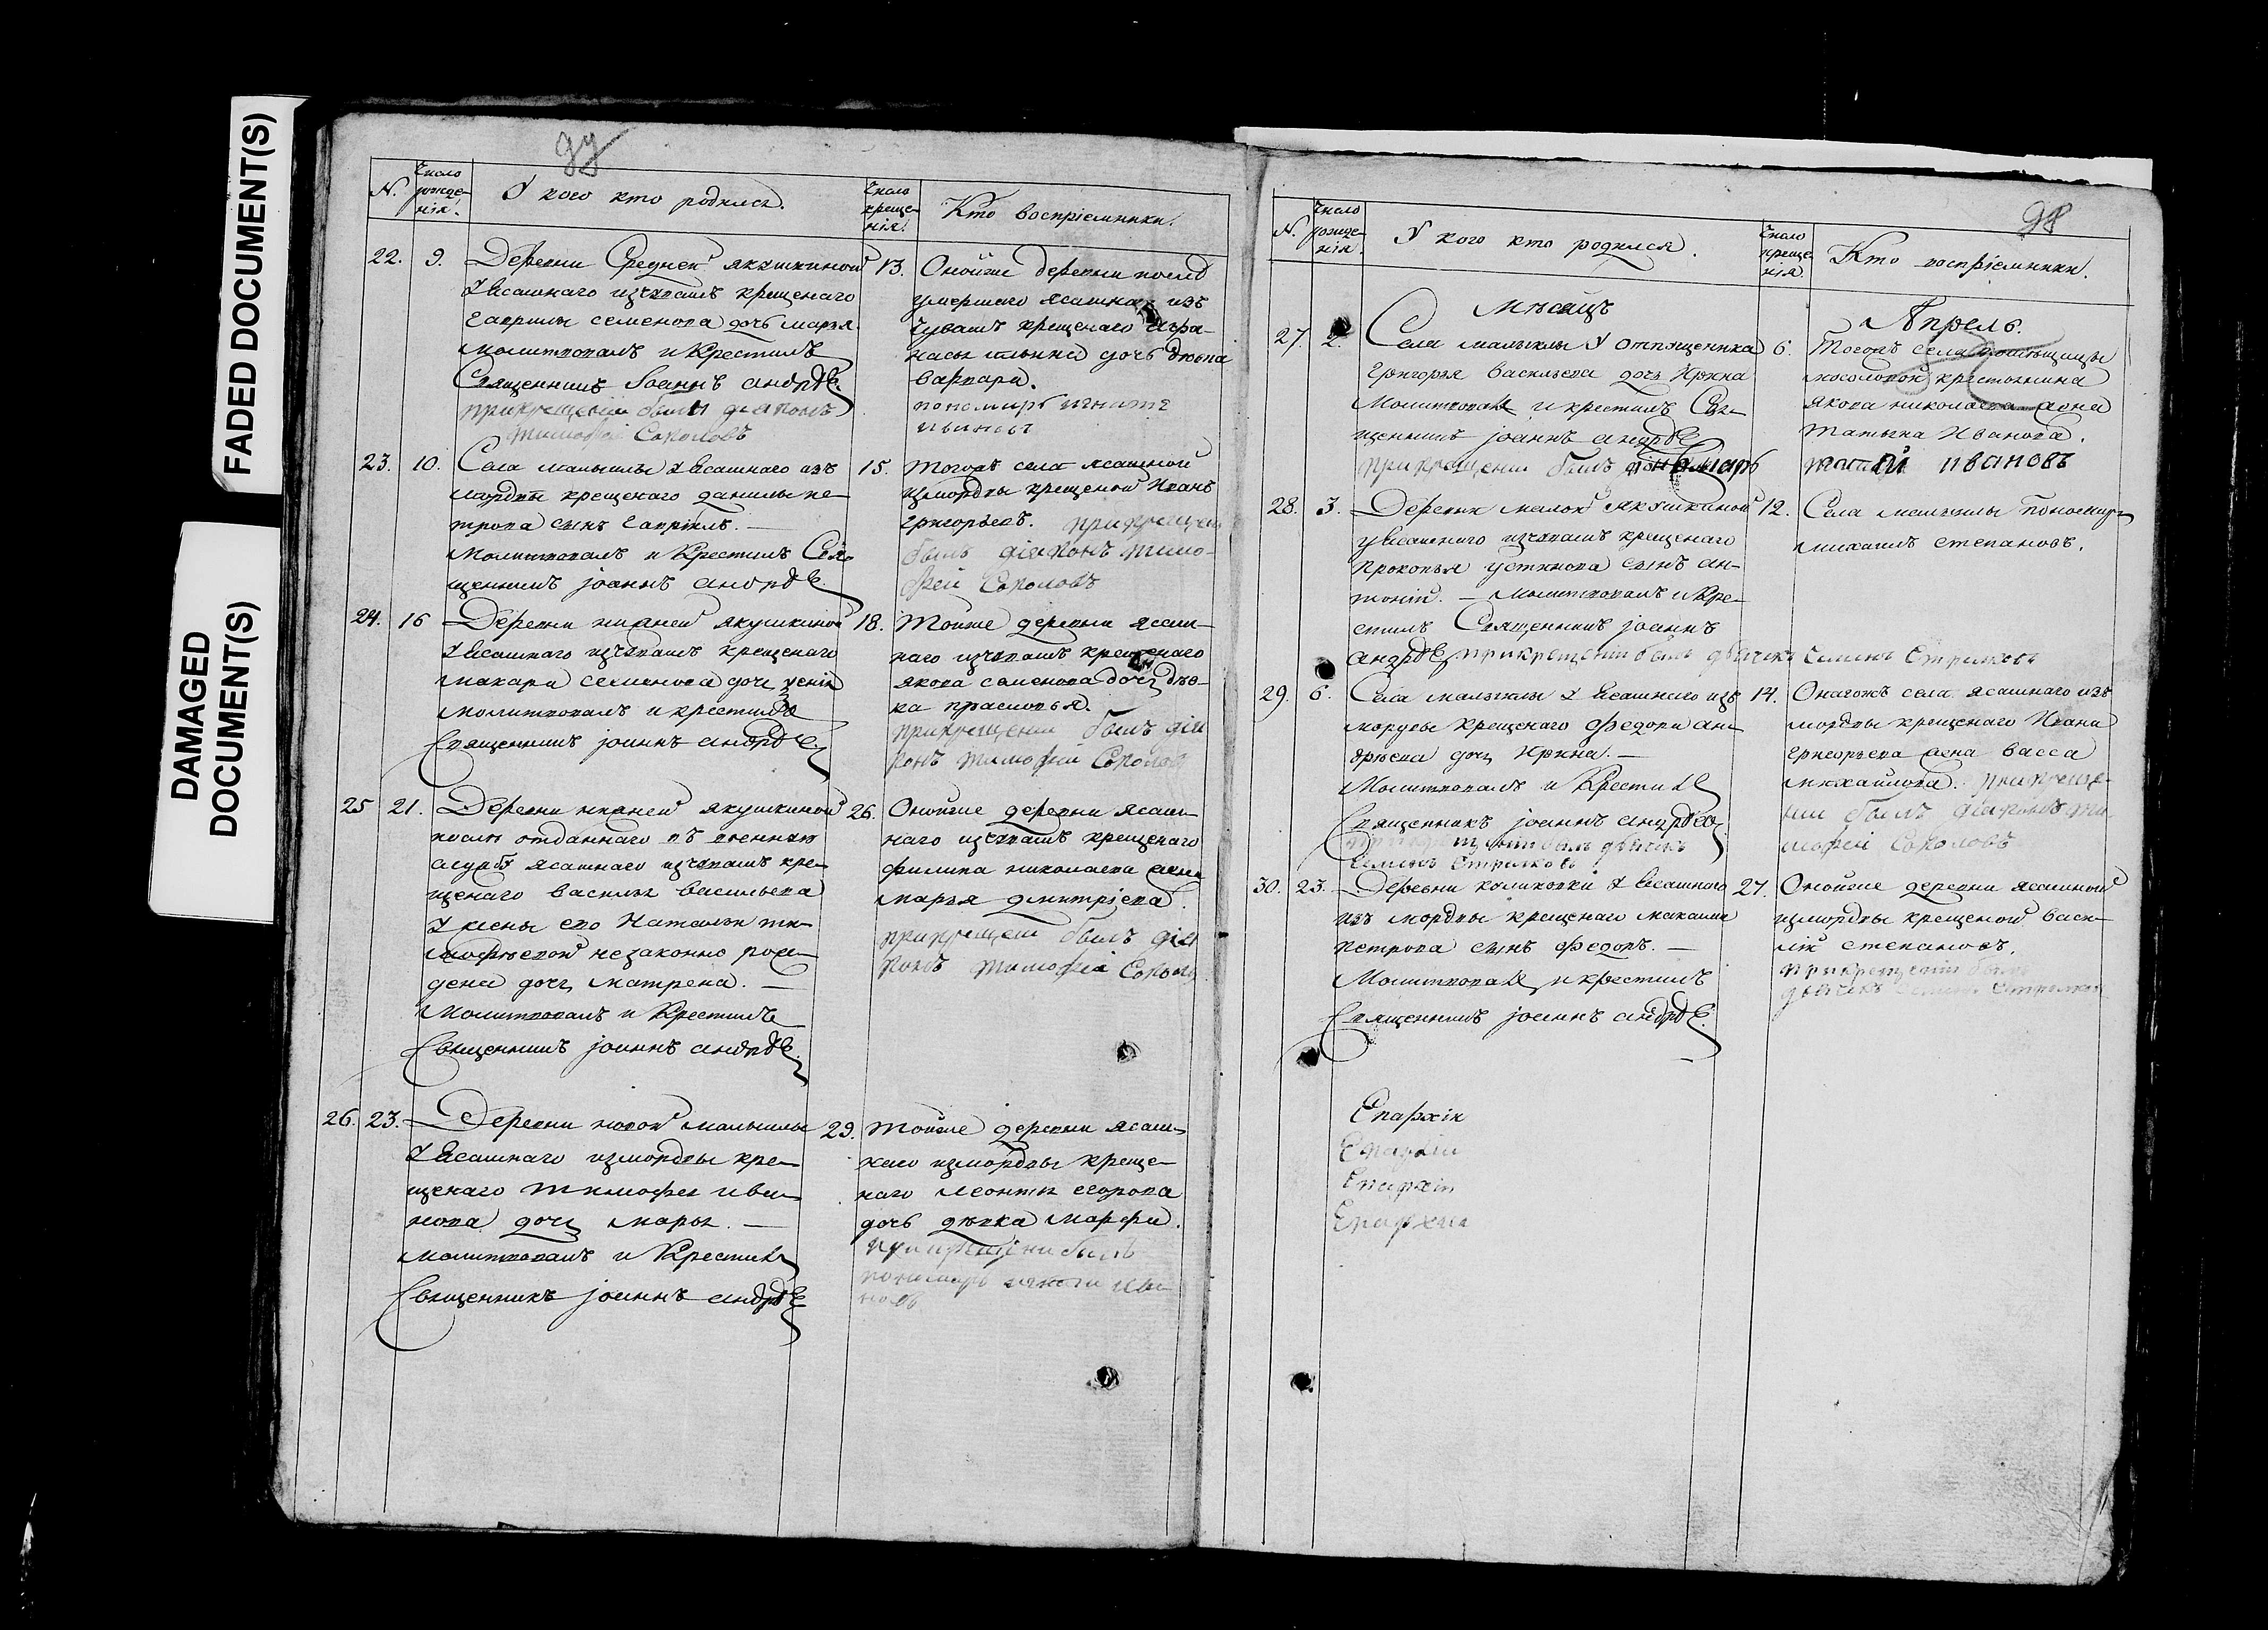 FADED DOCUMENT(S)
DAMAGED
DOCUMENT(S)
97
N.
Число рожде-нія.
У кого кто родился.
Число креще-нія.
Кто воспріемники.
22. 9. Деревни Средней якушкиной 13.
У Ясашнаго изъчувашъ крещенаго
гаврилы семенова дочь марья.
молитвовалъ и Крестилъ
Священникъ Іоаннъ андрѣе.
прикрещеніи былъ діаконъ
тимофей Соколовъ
Онойже деревни послѣ
умершаго ясашнаго изъ
Чувашъ крещенаго
дочь дѣвка
варвара.
пономарь игнатей
ивановъ
23. 10. Села малыклы У Ясашнаго изъ 15.
мордвы крещенаго данилы пе-
трова сынъ гаврiилъ. —
молитвовалъ и Крестилъ Свя-
щенникъ іоаннъ андрѣе.
тогожъ села ясашной
измордвы крещеной Иванъ
григорьевъ. прикрещен
былъ діаконъ тимо-
фей Соколовъ
24. 16 Деревни нижней якушкиной 18.
У Ясашнаго изъчувашъ крещенаго
макара семенова дочь
молитвовалъ и крестилъ
Священникъ іоаннъ андрѣе.
Тойже деревни ясаш-
наго изъчувашъ крещенаго
якова семенова дочь дѣв-
ка прасковья.
прикрещеніи былъ діа
конъ тимофей Соколов
25 21. Деревни нижней якушкиной 26.
послѣ отданнаго въ военную
службу ясашнаго изъчувашъ кре-
щенаго василья васильева
У жены его Натальи ти-
мофѣевой незаконно рож-
дена дочь матрена. —
Молитвовалъ и Крестилъ
Священникъ іоаннъ андрѣе.
Онойже деревни ясаш-
наго изъчувашъ крещенаго
филипа николаева жена
марья дмитріева.
прикрещеніи былъ діа
конъ тимофей Соколов
26. 23. Деревни новой малыклы 29.
У Ясашнаго измордвы кре-
щенаго тимофея ива-
нова дочь марья. —
молитвовалъ и Крестилъ
Священникъ іоаннъ андрѣе
тойже деревни ясаш-
наго измордвы креще-
наго леонтья егорова
дочь дѣвка марфа.
прикрещени былъ
пономарь игнатей ива
новъ
98
N.
Число рожде-нія.
У кого кто родился.
Число креще-нія.
Кто воспріемники.
Мѣсяцъ Апрель.
27. 2. Села малыклы У отпущеника 6.
григорья васильева дочь Ирина
Молитвовалъ и крестилъ Свя-
щенникъ іоаннъ андрѣе
прикрещеніи былъ пономарь
Тогожъ села
крестьянина
якова николаева жена
татьяна Иванова.
ивановъ
28. 3. Деревни малой якушкиной 12.
у Ясашнаго изчувашъ крещенаго
прокопья устинова сынъ ан-
тоній. — молитвовалъ и Кре-
стилъ Священникъ іоаннъ
андрѣе. прикрещеніи былъ дьячекъ Семенъ Стрелковъ
Села малыклы пономарь
михаилъ степановъ.
29. 6. Села малыклы У Ясашнаго изъ 14.
мордвы крещенаго Федора ан-
дрѣева дочь Ирина. —
Молитвовалъ и Крестилъ
Священникъ іоаннъ андрѣе
прикрещеніи былъ дьячекъ
Семенъ Стрелковъ
Онагожъ села ясашнаго изъ
мордвы крещенаго Ивана
григорьева жена васса
михайлова. прикреще-
ніи былъ діаконъ ти
мофей Соколовъ
30. 23. Деревни коликовки У Ясашнаго 27.
изъ мордвы крещенаго
петрова сынъ федоръ. —
Молитвовалъ и крестилъ
Священникъ іоаннъ андрѣе.
Онойже деревни ясашной
измордвы крещеной васи-
лій степановъ.
прикрещеніи былъ
дьячекъ Семенъ Стрелков
Епархіи
Епархіи
Епархіи
Епархіи